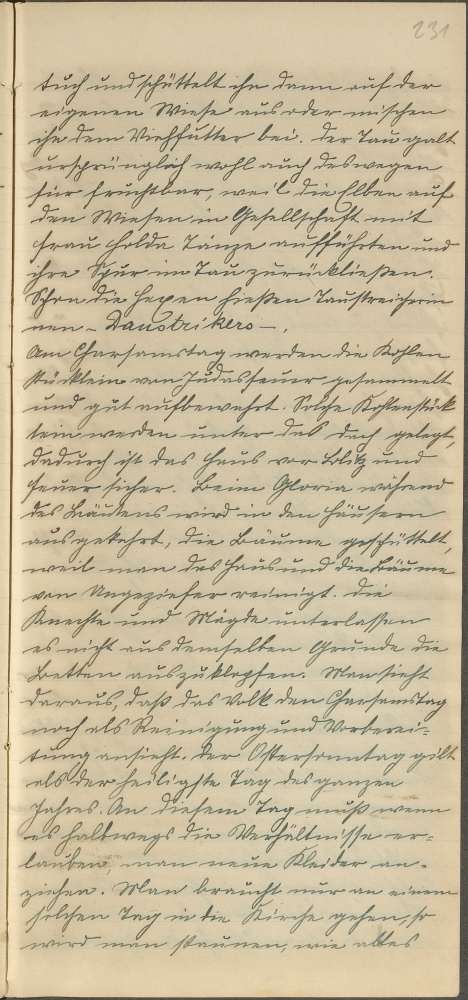 231
tuch und schüttelt ihn dann auf der
eigenen Wiese aus oder mischen
ihn dem Viehfutter bei. Der Tau galt
ursprünglich wohl auch deswegen
für fruchtbar, weil die Elben auf
den Wiesen in Gesellschaft mit
Frau Holda Tänze aufführten und
ihre Spur im Tau zurückließen.
Schon die Hexen hießen Taustreicherin
nen - Daustrikers -.
Am Charsamstag werden die Kohlen
stücklein vom Judasfeuer gesammelt
und gut aufbewahrt. Solche Kohlenstück
lein werden unter das Dach gelegt,
dadurch ist das Haus vor Blitz und
Feuer sicher. Beim Gloria während
des Läutens wird in den Häusern
ausgekehrt, die Bäume geschüttelt,
weil man das Haus und die Bäume
von Ungeziefer reinigt. Die
Knechte und Mägde unterlassen
es nicht aus demselben Grunde die
Betten auszuklopfen. Man sieht
daraus, daß das Volk den Charsamstag
noch als Reinigung und Vorberei-
tung ansieht. Der Ostersonntag gilt
als der heiligste Tag des ganzen
Jahres. An diesem Tag muß wenn
es halbwegs die Verhältnisse er-
lauben, man neue Kleider an-
ziehen. Man braucht nur an einem
solchen Tag in die Kirche gehen, so
wird man staunen, wie alles